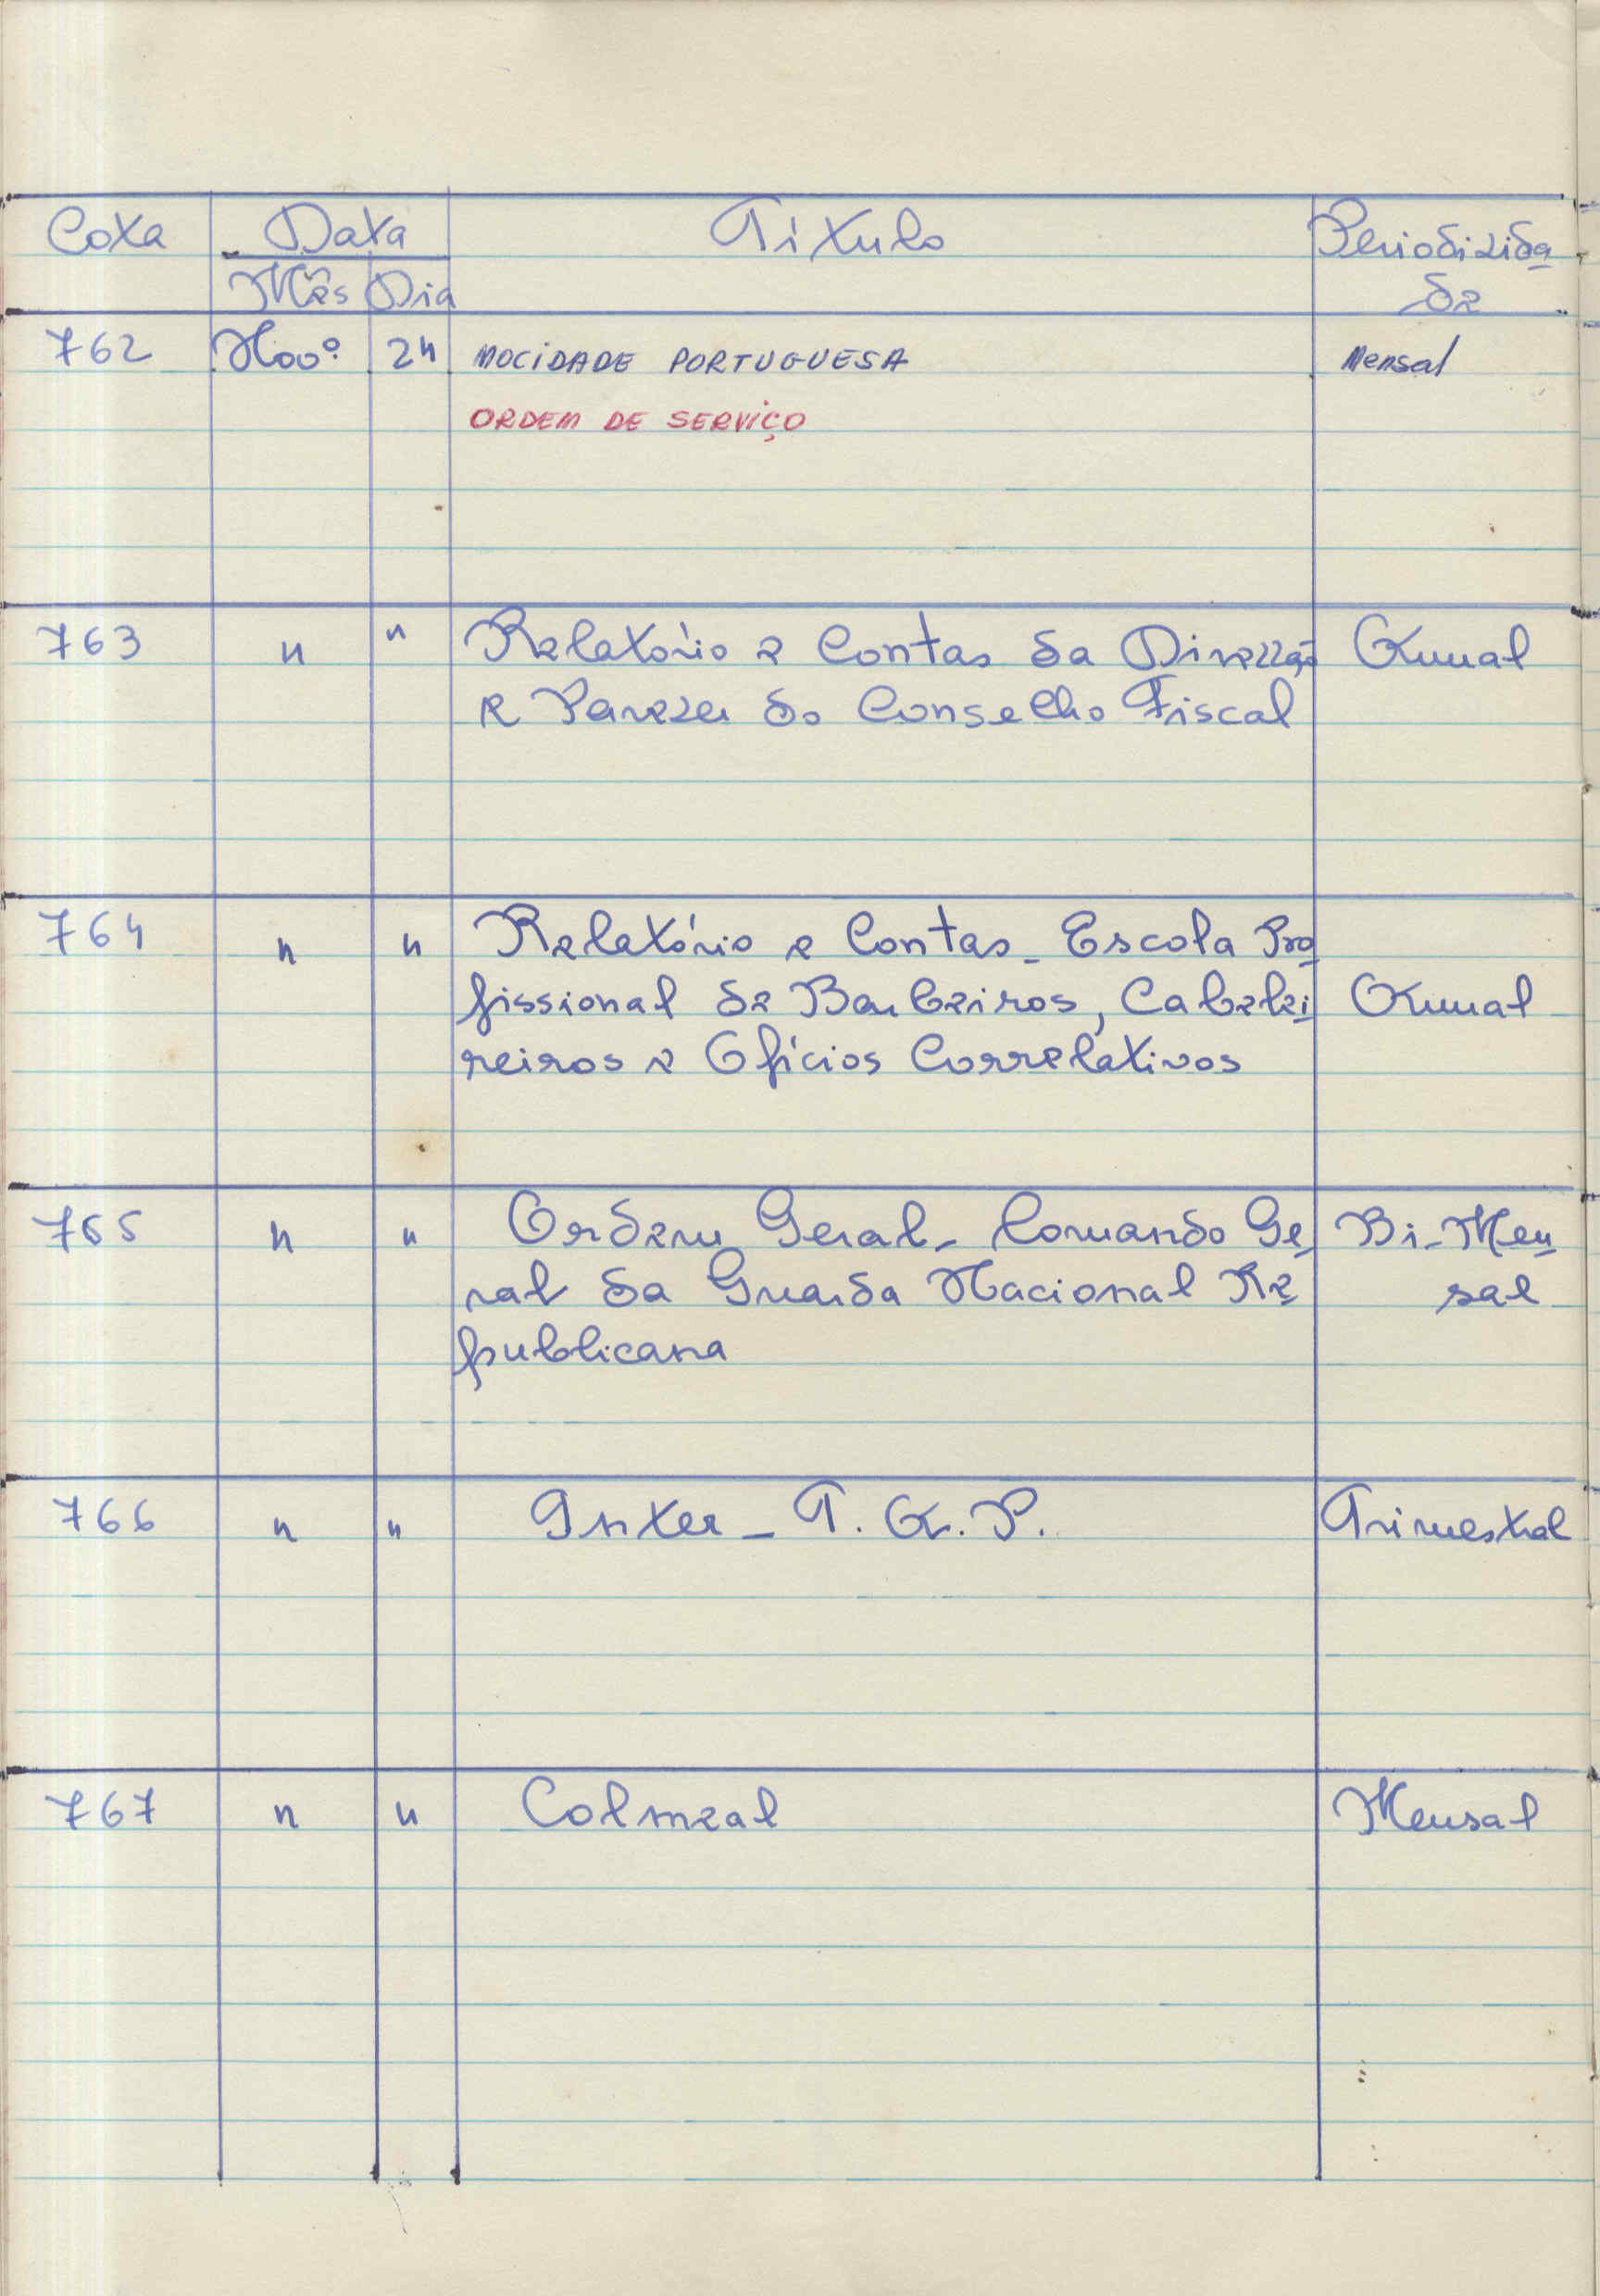 Cota Data Título Periodicida
Mês Dia de
762 Novº 24 MOCIDADE PORTUGUESA Mensal
ORDEM DE SERVIÇO
763 " " Relatório e Contas da Direcção Anual
e Parecer do Conselho Fiscal
764 " " Relatório e Contas - Escola Pro
fissional de Barbeiros, Cabelei Anual
reiros e Ofícios Correlativos
765 " " Ordem Geral - Comando Ge Bi-Men
ral da Guarda Nacional Re sal
publicana
766 " " Inter - T. A. P. Trimestral
767 " " Colmeal Mensal